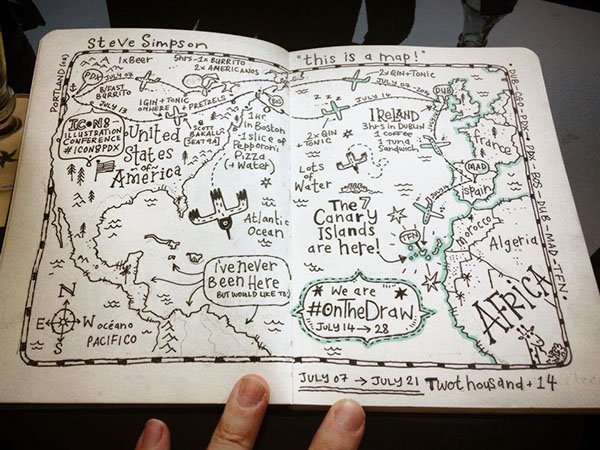 Steve Simpson
"this is a map!"
PORTLAND (OR)
PDX
JULY 07
1x Beer
5hrs-1x BURRITO
2x AMERICANOS
2x GIN+TONIC
JULY 07
B/FAST
BURRITO
JULY 13
1 GIN + TONIC
OTHERE
+ PRETZELS
JULY 14
BOS
DUB
ICON8
ILLUSTRATION
CONFERENCE
#ICON8PDX
United
States
of
America
SCOTT
BAKAL!
SEAT 9A
1HR
in Boston
-1slice of
Pepperoni
Pizza
(+ Water)
2x GIN
+ TONIC
IRELAND
3hrs in DUBLIN
1 coffee
1/2 tuna
Sandwich
France
MAD
Spain
Lots
of
Water
The 7
Canary
Islands
are here!
TFN
Atlantic
Ocean
Morocco
Algeria
AFRICA
I've never
Been Here
BUT WOULD LIKE TO!
We are
#OnTheDraw
JULY 14 → 28
N
E
W
S
océano
PACIFICO
JULY 07 → JULY 21 Twothousand + 14